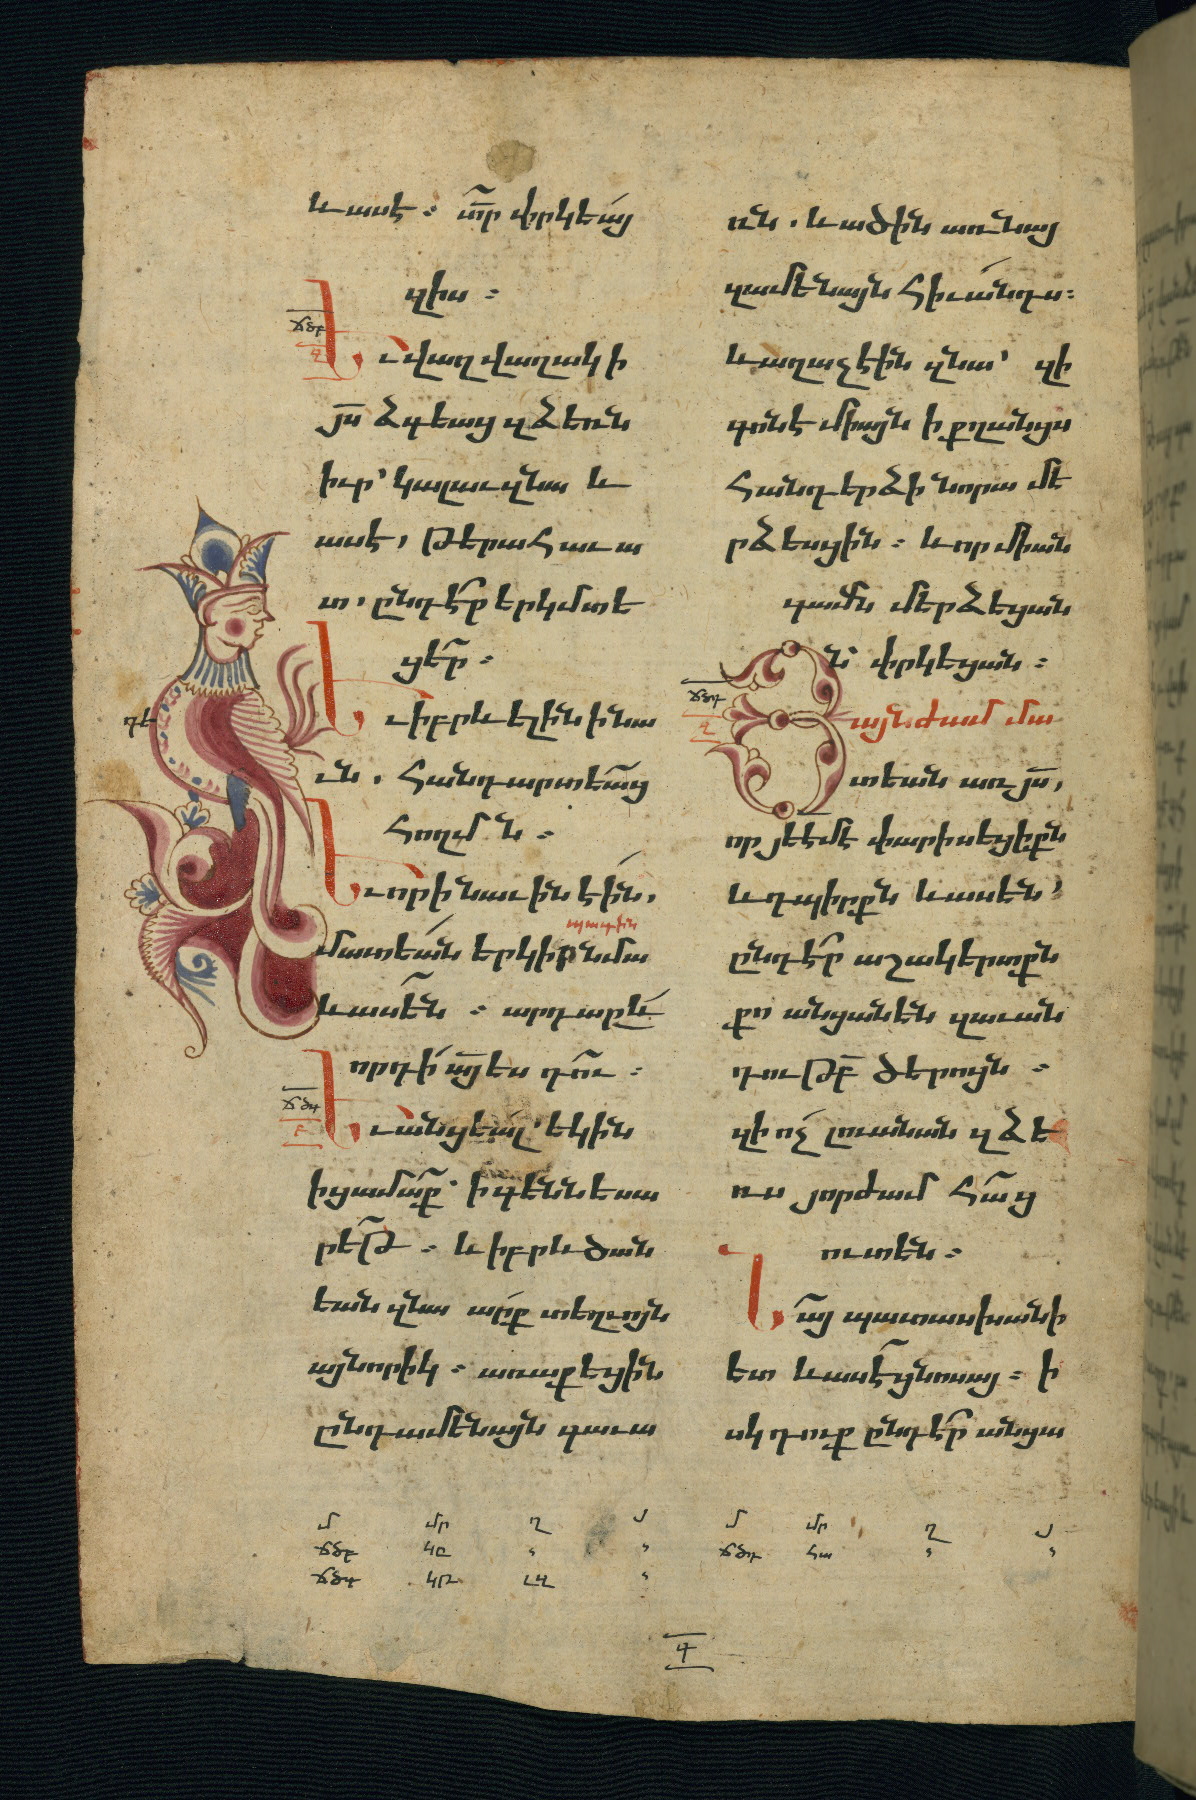 և ասէ ։ տ̅ր փրկեա՛յ
զիս ։
ճծբ
Եւ վաղվաղակի
յս̅ ձգեաց զձեռն
իւր՝ կալաւ զնա և
ասէ, թերահաւա
տ, ընդէ՞ր երկմտե
ցե՞ր ։
Եւ իբրև ելին ի նա
ւն . հանդարտեաց
հողմն ։
Եւ որ ի նաւին էին,
պագին
մատեա՛ն երկիր նմա
և ասեն ։ արդարև՛
որդի ա̅յ ես դու ։
ճծգ
Եւ անցեալ՝ եկին
ի ցամաք՝ ի գեննեսա
րէթ ։ և իբրև ծան
եան զնա արք տեղւոյն
այնորիկ ։ առաքեցին
ընդ ամենայն գաւա
ռն . և ածին առ նայ
զամենայն հիւանդս ։
և աղաչէին զնա՝ զի
գոնէ միայն ի քղանցս
հանդերձի նորա մե
րձեսցին ։ և որ միան
գամ մերձեցան
ն՝ փրկեցան ։
ճծդ
Յայնժամ մա
տեան առ յս̅,
որ յեէմէ փարիսեցիքն
և դպիրքն և ասեն՝
ընդէ՞ր աշակերտքն
քո անցանեն զաւան
դութբ̅ ծերոյն ։
զի ոչ լուանան զձե
ռս յորժամ հաց
ուտեն ։
Նայ պատասխանի
ետ և ասէ ցնոսայ ։ ի
սկ դուք ընդէ՞ր անցա
մ մր ղ յ
ճծբ
ճծգ կթ
մ մր ղ յ
ճծդ հա